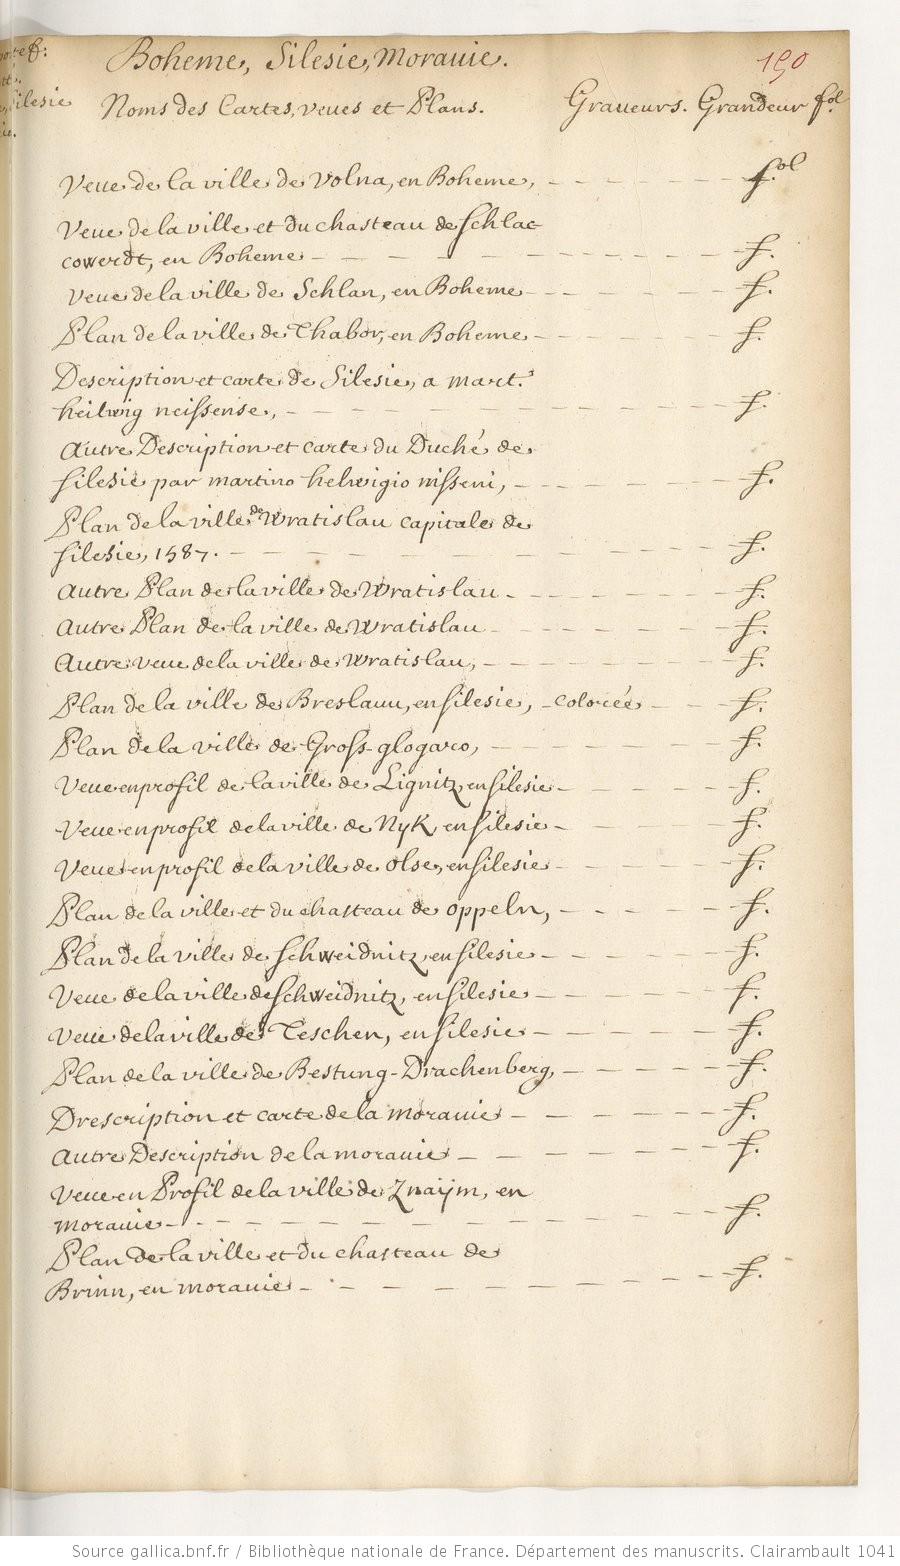 Boheme, Silesie, Moravie.
190
Noms des Cartes, veues et Plans. Graveurs. Grandeur fol
Veue de la ville de Volna, en Boheme, fol
Veue de la ville et du chasteau de Schlac
cowerdt, en Boheme f.
Veue de la ville de Schlan, en Boheme f.
Plan de la ville de Thabor, en Boheme f.
Description et carte de Silesie, a mart.
heilwig neissense, f.
Autre Description et carte du Duché de
silesie par martino helwigio nisseni, f.
Plan de la ville de Wratislau capitale de
silesie, 1587. f.
Autre Plan de la ville de Wratislau f.
Autre Plan de la ville de Wratislau f.
Autre veue de la ville de Wratislau, f.
Plan de la ville de Breslauu, en silesie, colorée f.
Plan de la ville de Gross-glogaw, f.
Veue en profil de la ville de Lignitz, en silesie f.
Veue en profil de la ville de Nyk, en silesie f.
Veue en profil de la ville de Olse, en silesie f.
Plan de la ville et du chasteau de Oppeln, f.
Plan de la ville de Schweidnitz, en silesie f.
Veue de la ville de Schweidnitz, en silesie f.
Veue de la ville de Teschen, en silesie f.
Plan de la ville de Bestung-Drachenberg, f.
Drescription et carte de la moravie f.
Autre Description de la moravie f.
Veue en Profil de la ville de Znaijm, en
moravie f.
Plan de la ville et du chasteau de
Brinn, en moravie f.
Source gallica.bnf.fr / Bibliothèque nationale de France. Département des manuscrits. Clairambault 1041